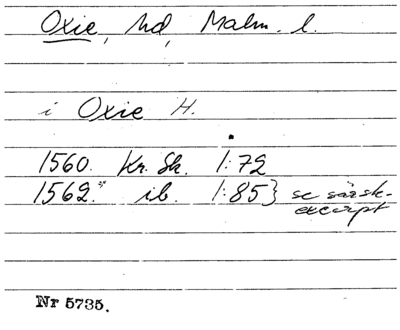 Oxie, hd, Malm. l.
i Oxie H.
1560. Kr. Sk. 1:72
1562.* ib. 1:85} se särsk.
excerpt
Nr 5735.